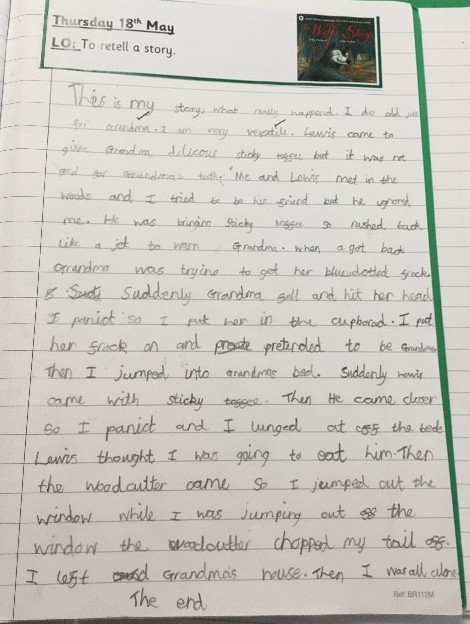 Thursday 18th May
LO: To retell a story.
The Wolf's Story
This is my story, what really happend. I do odd jobs
for Grandma. I am very versatile. Lewis came to
give Grandma dilicous sticky toggee but it was not
good for Grandma's teeth. Me and Lewis met in the
woods and I tried to be his friend but he ignord
me. He was bringing sticky toggee so rushed back
like a jet to warn Grandma. When a got back
Grandma was trying to get her blue dotted frock.
Suddenly Grandma fell and hit her head
I panict so I put her in the cupborad. I put
her frock on and pretended to be Grandma
Then I jumped into Grandmas bed. Suddenly Lewis
came with sticky toggee. Then He came closer
so I panict and I lunged at off the bed.
Lewis thought I was going to eat him. Then
the woodcutter came so I jumped out the
window while I was jumping out the
window the woodcutter chopped my tail off.
I left Grandma's house. Then I was all alone
The end
Ref: BR112M